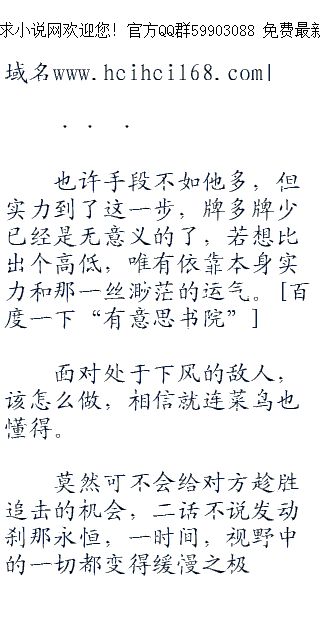 求小说网欢迎您！官方QQ群59903088 免费最新
域名www.hcihcil68.com|
. . .
也许手段不如他多，但
实力到了这一步，牌多牌少
已经是无意义的了，若想比
出个高低，唯有依靠本身实
力和那一丝渺茫的运气。[百
度一下“有意思书院”]
面对处于下风的敌人，
该怎么做，相信就连菜鸟也
懂得。
莫然可不会给对方趁胜
追击的机会，二话不说发动
刹那永恒，一时间，视野中
的一切都变得缓慢之极